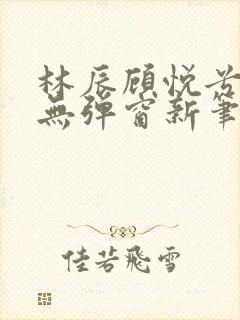 林辰顾悦芳
無弹窗新筆
佳若飛雪